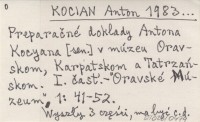 KOCIAN Anton 1983...
Preparačné doklady Antona
Kocyana [sen] v múzeu Orav-
skom, Karpatskom a Tatrzań-
skom. I. časť. - "Oravské Mú-
zeum", 1: 41-52.
Wyszły 3 części,